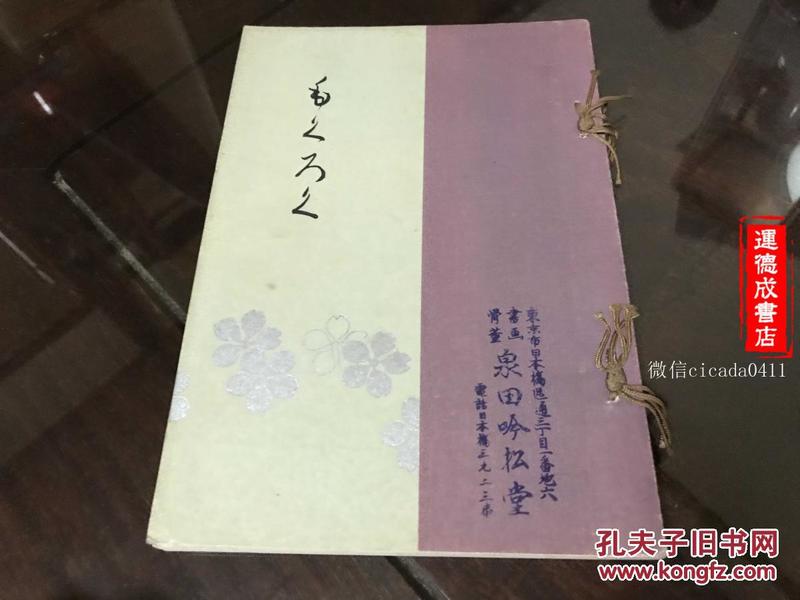 もくろく
東京市日本橋区通三丁目一番地六
書画
骨董
泉田吟松堂
電話日本橋三九二三番
運德成書店
微信cicada0411
孔夫子旧书网
www.kongfz.com